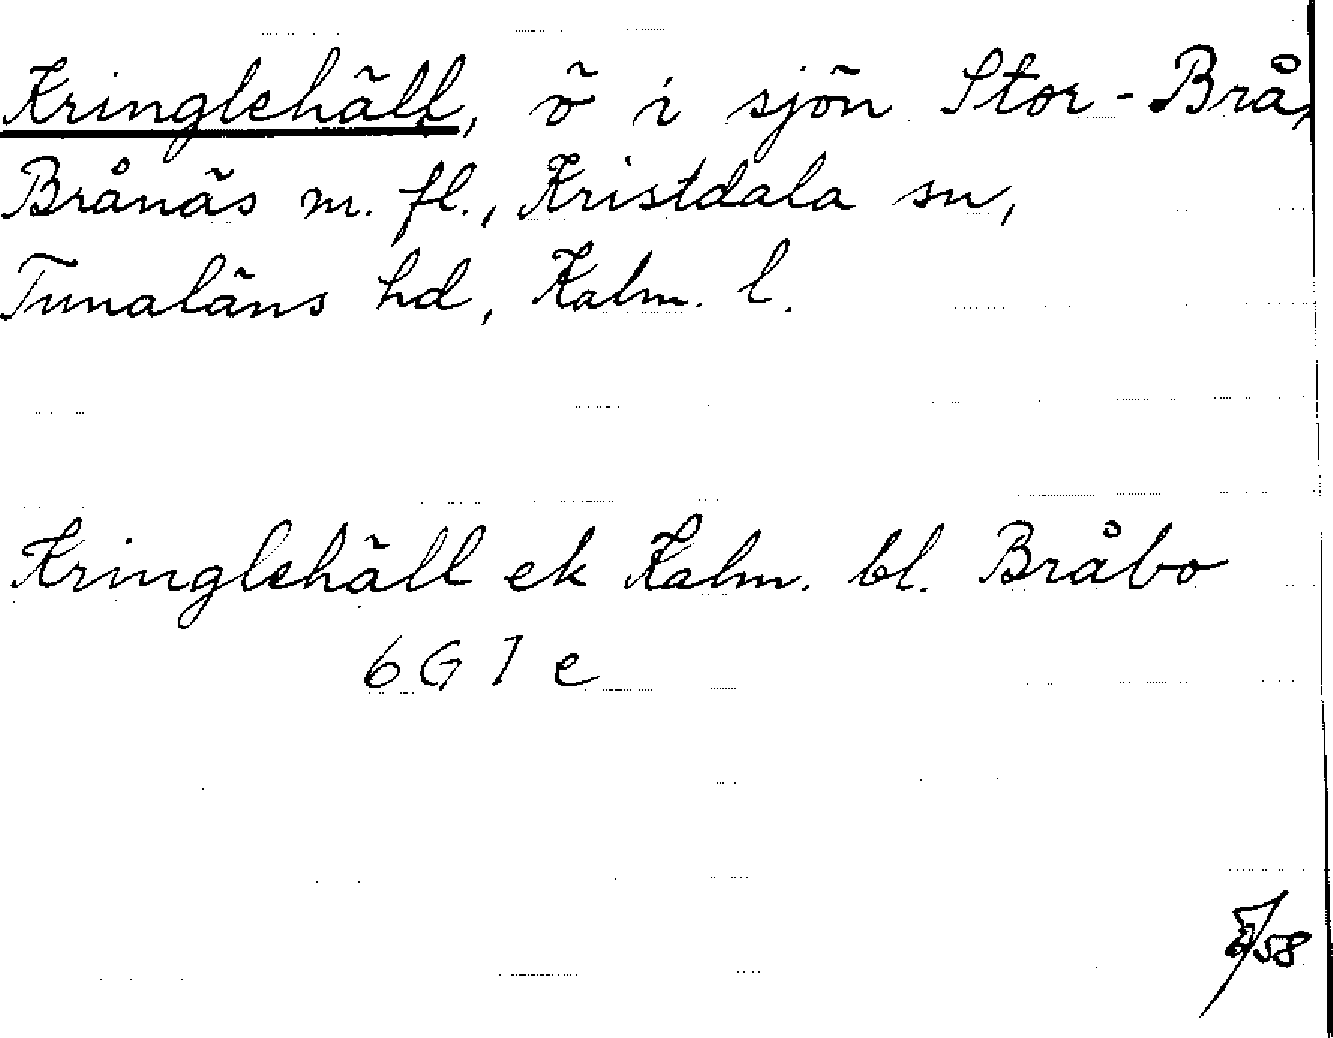 Kringlehäll, ö i sjön Stor-Brå,
Brånäs m. fl., Kristdala sn,
Tunaläns hd, Kalm. l.
Kringlehäll ek Kalm. bl. Bråbo
6 G 7 e
/58